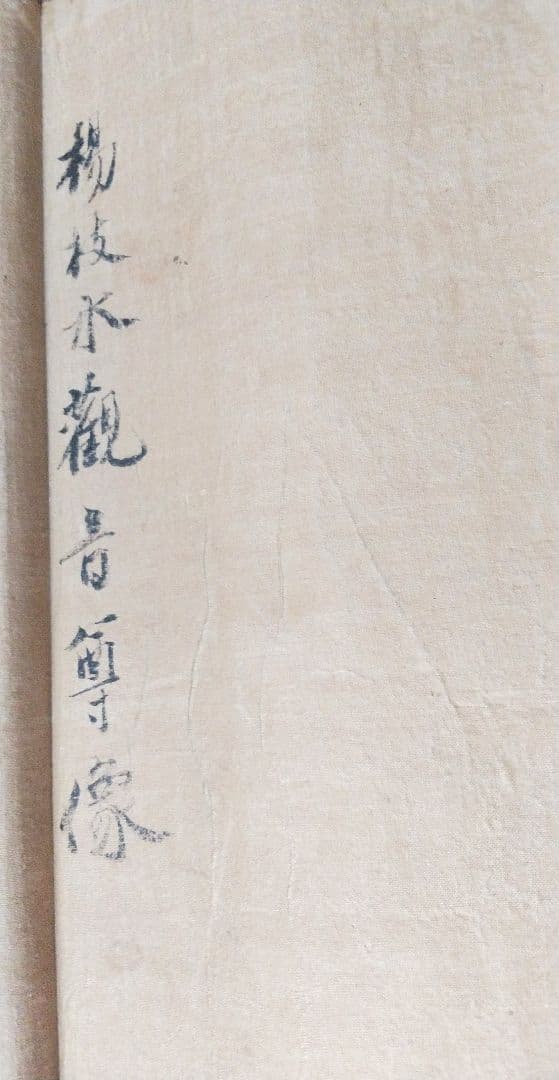 楊枝水觀音尊像